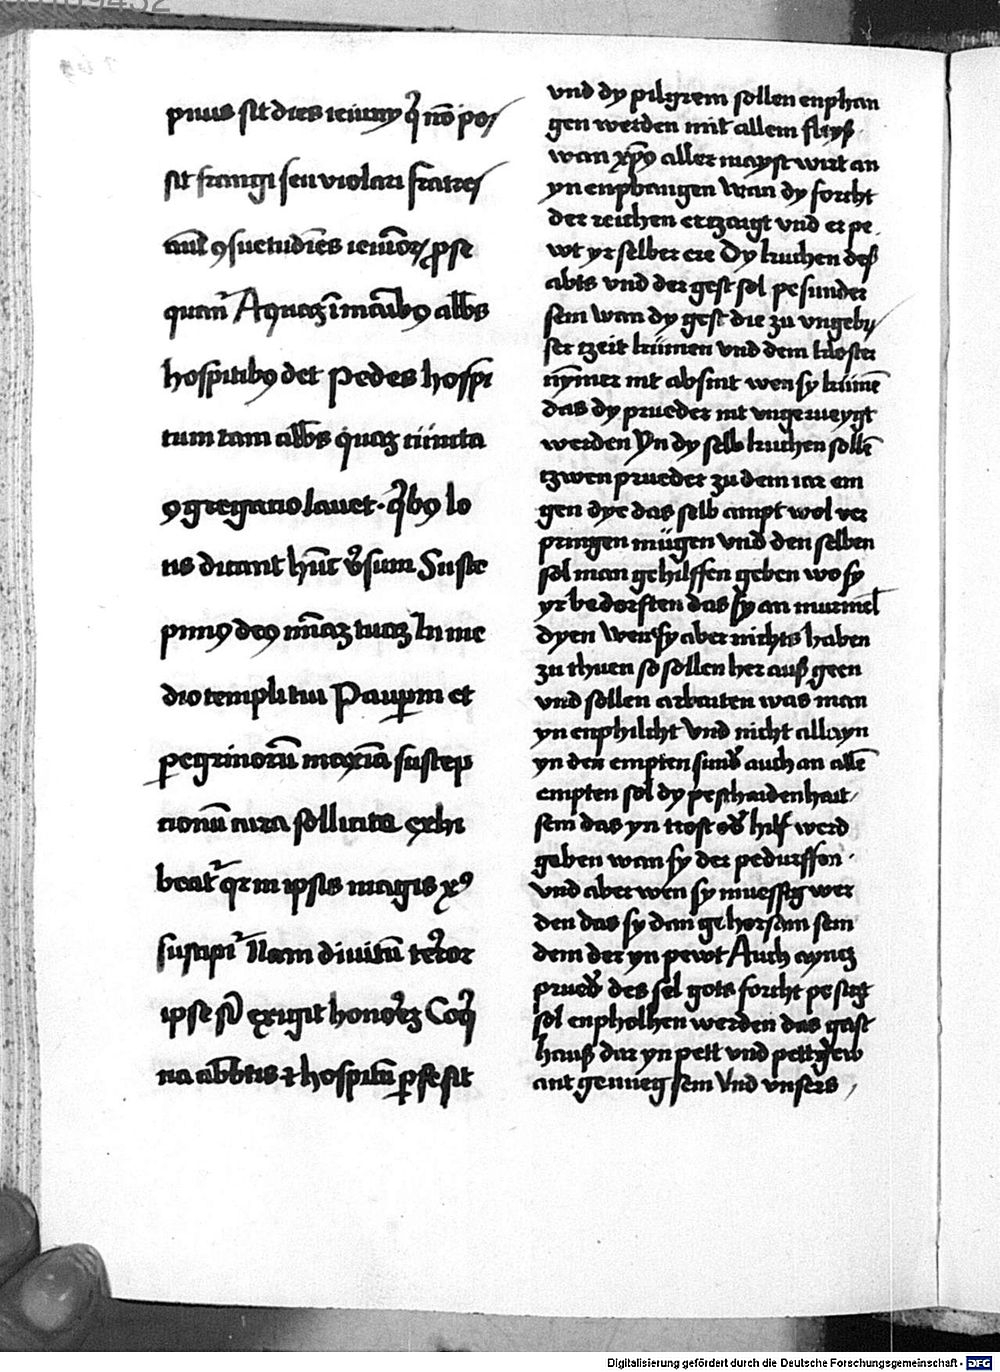 pnus sit dies ieiuny q̄ nō pos
sit frangi seu violari fratres
aūt ꝯsuetudīes ieiūiorꝝ ꝓse
quant᷑ Aquaꝫ ī māibꝰ abbs
hospitibꝰ det Pedes hospi
tum tam abbs quaꝫ cūncta
ꝯgregatio lauet · q̄bꝰ lo
tis dicant hūc v̓sum Susce
pimꝰ deꝰ mīaꝫ tuaꝫ In me
dio templi tui Pauꝑum et
ꝑegrinorū maxīa suscep
tionū cura sollicite exhi
beat᷑ qr in ipsis magis xꝰ
suscipit᷑ Nam diuitū terror
ipse sꝫ exigit honorēꝫ Coq̄
na abbtis ⁊ hospitū ꝑ se sit
vnd dy pilgrem sollen enphan
gen werden mit allem flyß
wan xp̄o aller mayst wirt an
yn enpbangen Wan dy forcht
der reichen ertzaigt vnd er pe
wt yr selber ere Dy kuchen deß
abts vnd der gest sol pesunder
sein wan dy gest die zu vngebü
ser tzeit kümen vnd dem kloster
nȳmer nit absint wen sy kümē
das dy prueder nit vngerueygt
werden Yn dy selb kuchen sollē
tzwen prueder zu dem iar ein
gen dye das selb ampt wol ver
pringen mügen vnd den selben
sol man gehilffen geben wo sy
yr bedorften das sy an murmel
dyen Wen sy aber nichts haben
zu thuen so sollen her auß geen
vnd sollen arbaiten was man
yn enphilcht Vnd nicht allayn
yn den empten sund̓ auch an allē
empten sol dy peschaidenhait
sein das yn trost od̓ hilf werd
geben wan sy der pedurffen ·
vnd aber wen sy muessig wer
den das sy dan gehorsam sein
dem der yn pewt Auch aynes
prued̓ des sel gots forcht pesitzt
sol enpholhen werden das gast
hauß dar yn pett vnd pettgew
ant genueg sein Vnd vnsers
Digitalisierung gefördert durch die Deutsche Forschungsgemeinschaft - DFG